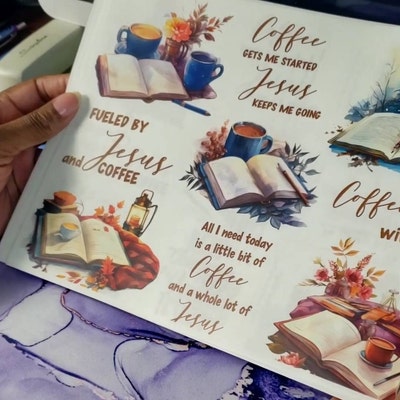 Coffee
GETS ME STARTED
Jesus
KEEPS ME GOING
FUELED BY
Jesus
and COFFEE
Coffee
wi
All I need today
is a little bit of
Coffee
and a whole lot of
Jesus